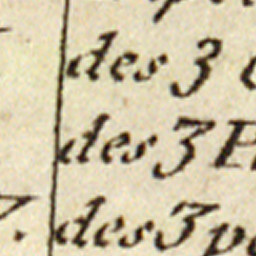 des 3
des 3 P
7. des 3 p